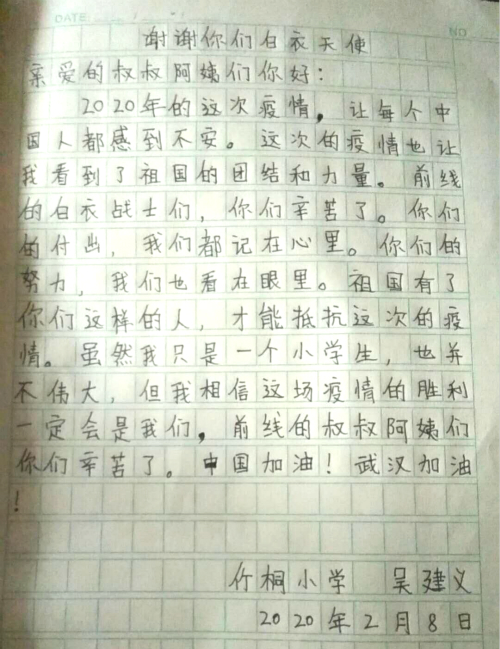 DATE:
NO
谢谢你们白衣天使
亲爱的叔叔阿姨们你好：
2020年的这次疫情，让每个中
国人都感到不安。这次的疫情也让
我看到了祖国的团结和力量。前线
的白衣战士们，你们辛苦了。你们
的付出，我们都记在心里。你们的
努力，我们也看在眼里。祖国有了
你们这样的人，才能抵抗这次的疫
情。虽然我只是一个小学生，也并
不伟大，但我相信这场疫情的胜利
一定会是我们，前线的叔叔阿姨们
你们辛苦了。中国加油！武汉加油
！
竹桐小学 吴建义
2020年2月8日